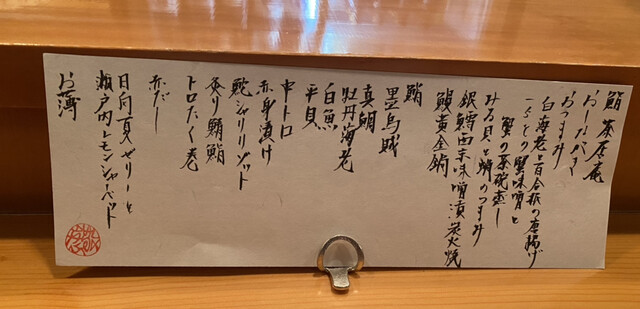 鮨 茶屋庵
おしながき
おつまみ
白海老と百合根の唐揚げ
いくらとの蟹味噌と
蟹の茶碗蒸し
みる貝と蛸のつまみ
銀鱈西京味噌漬炭火焼
鰻黄金鍋
鮨
墨烏賊
真鯛
牡丹海老
白魚
平貝
中トロ
赤身漬け
鮑シャリリゾット
炙り鯖鮨
トロたく巻
赤だし
日向夏ゼリーと
瀬戸内レモンシャーベット
お薄